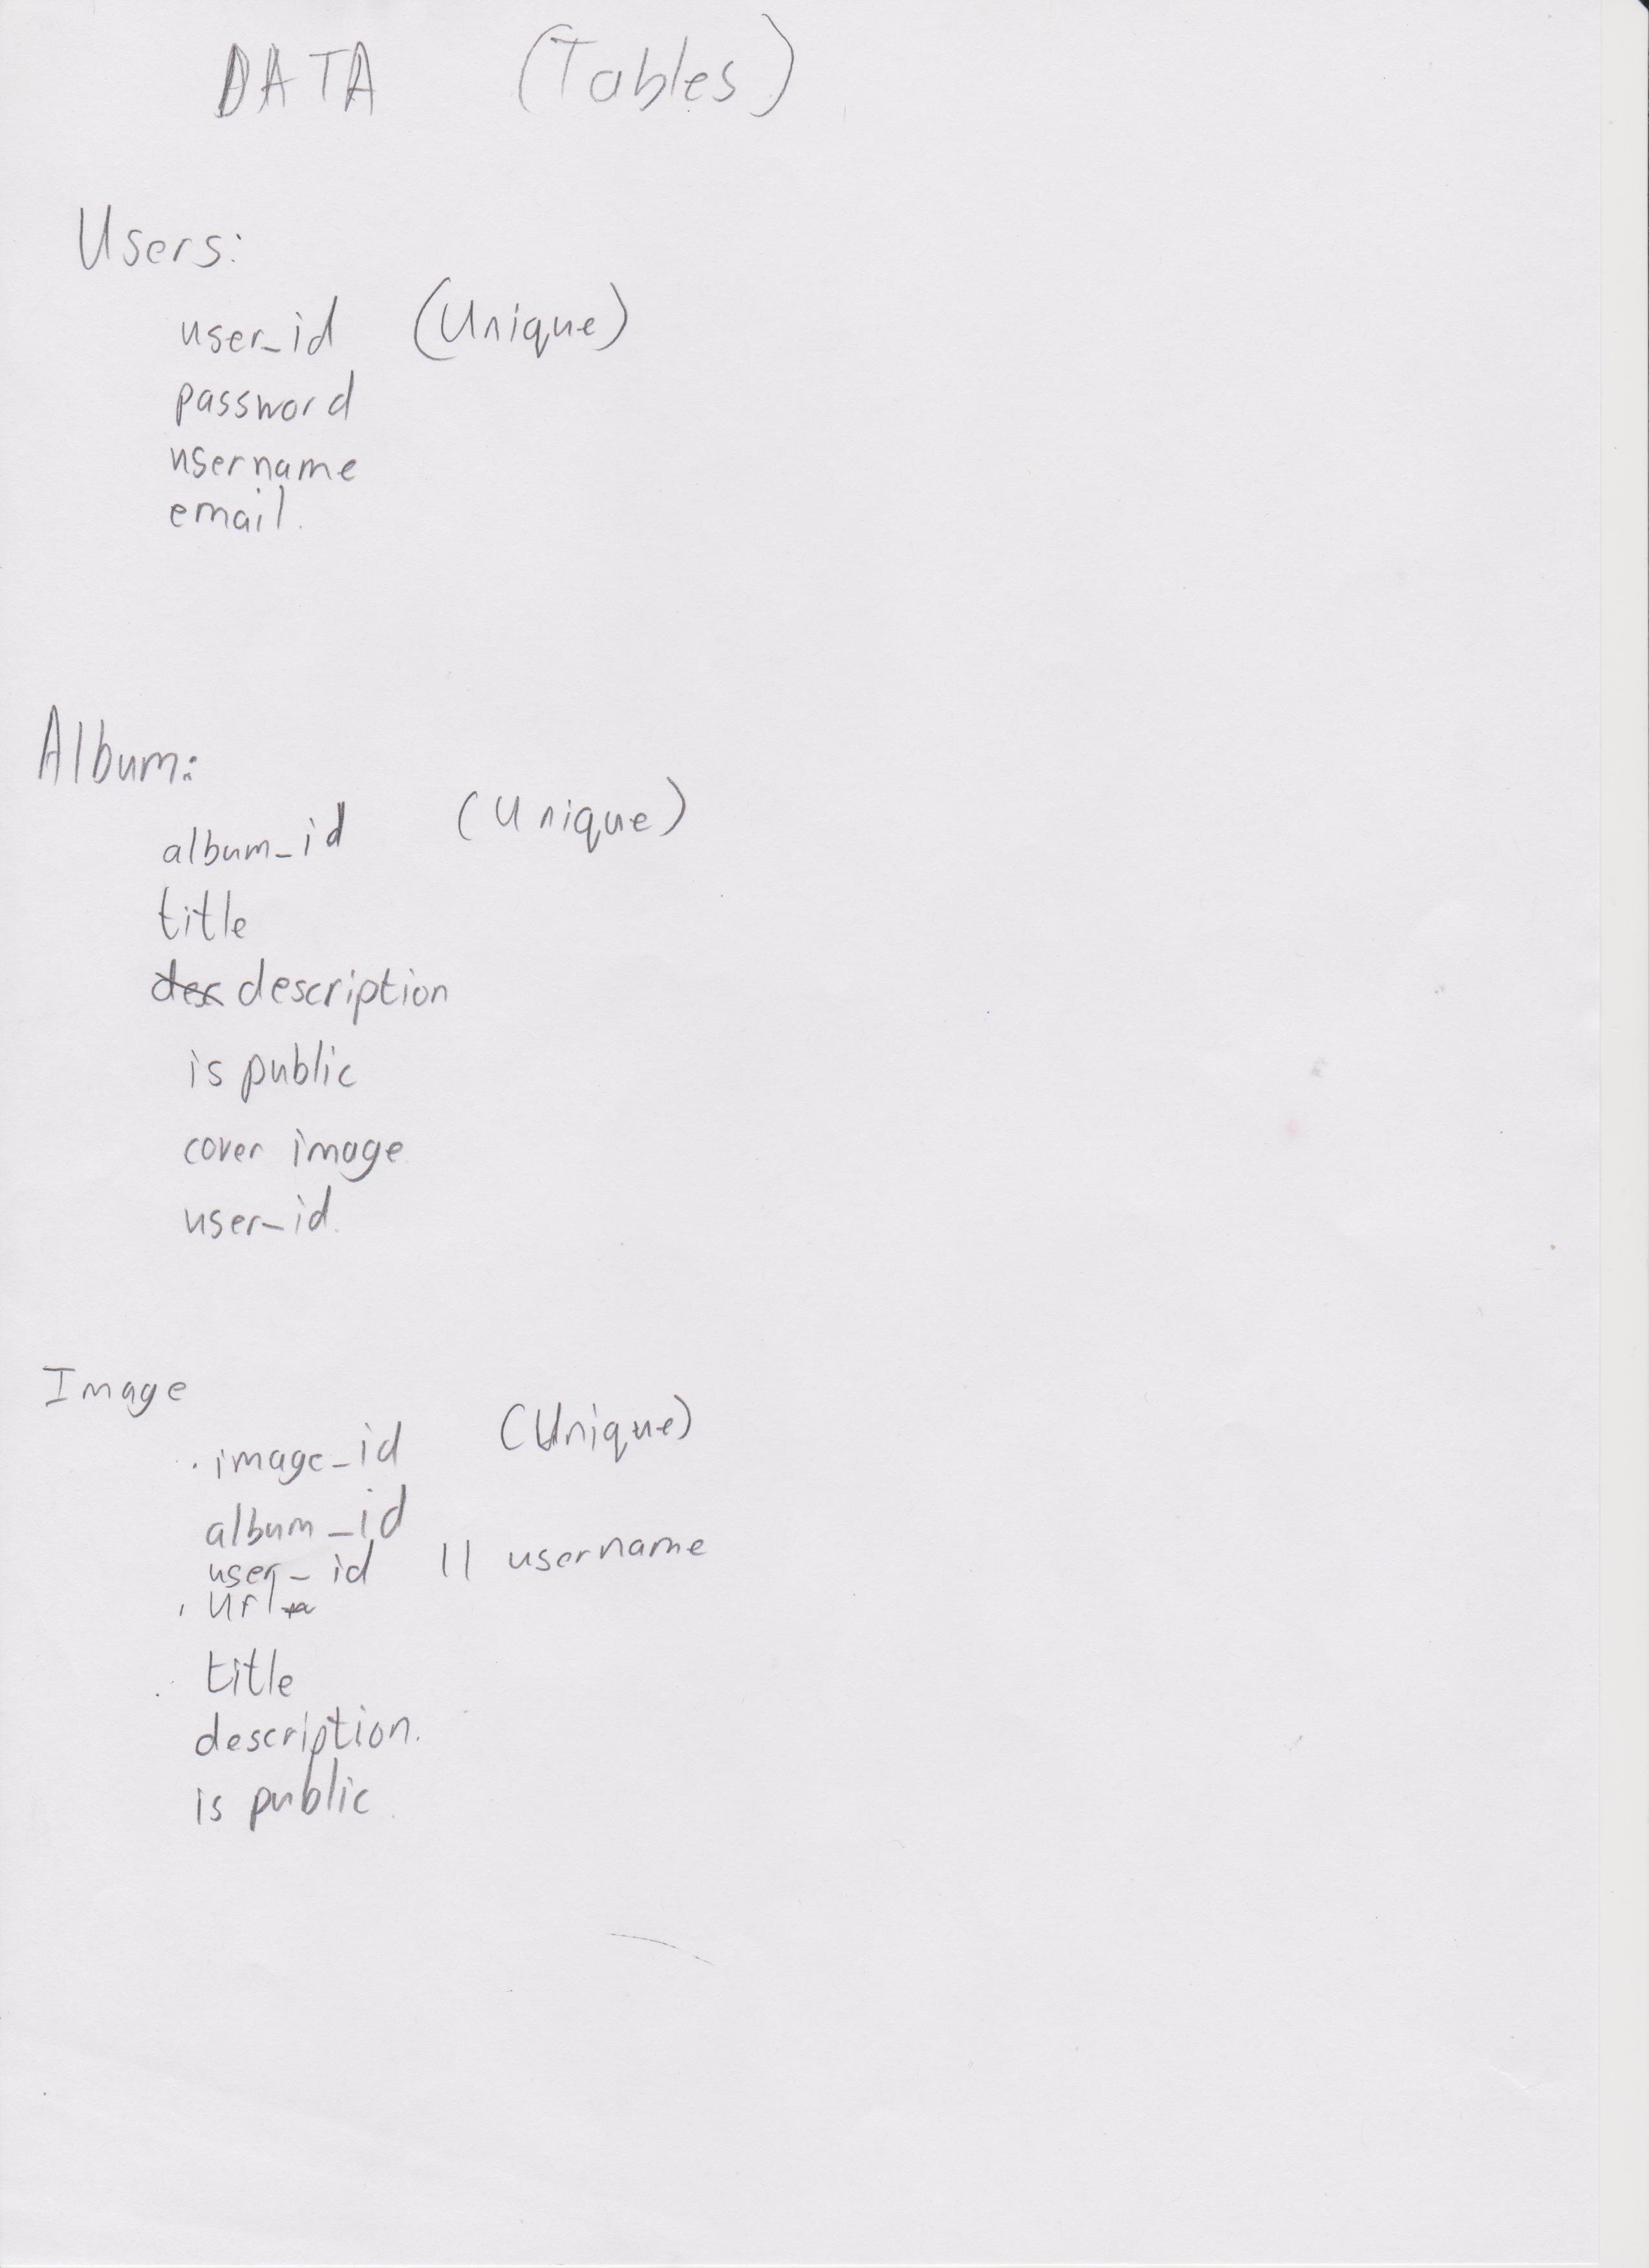 DATA (Tables)
Users:
user_id (Unique)
password
username
email.
Album:
album_id (Unique)
title
description
is public
cover image
user_id.
Image
. image_id (Unique)
album_id
user_id || username
. url
. title
description.
is public.